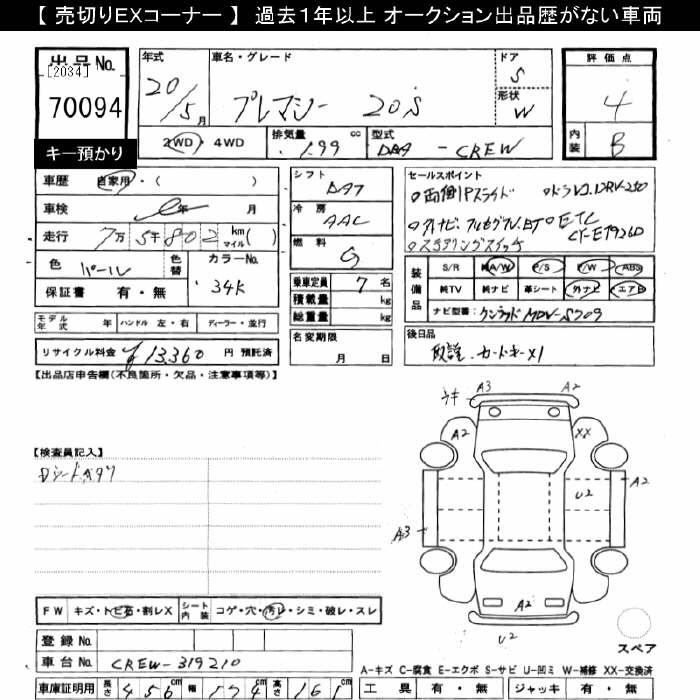 【 売切りEXコーナー 】 過去1年以上 オークション出品歴がない車両
出品No.
[2034]
70094
キー預かり
年式
20/5月
車名・グレード
プレマシー 20S
ドア
5
形状
W
評価点
4
内装
B
2WD・4WD
排気量
1.99 cc
型式
DBA - CREW
車歴 自家用・( )
車検 年 月
走行 7万5千802 km マイル( )
色 パール
色替
カラーNo.
34K
保証書 有・無
シフト
DAT
冷房
AAC
燃料
G
乗車定員 7名
積載量 kg
総重量 kg
名変期限
月 日
セールスポイント
両側Pスライド
ナビ・アルミ・TV・BT ETC
ステアリングスイッチ
装備品
S/R A/W P/S P/W ABS
純TV 純ナビ 革シート 外ナビ エアB
ナビ型番: ケンウッド MDV-S709
モデル年式 年 ハンドル 左・右 ディーラー・並行
リサイクル料金 ¥13,360 円 預託済
後日品
取説、カードキーx1
【出品店申告欄(不良箇所・欠品・注意事項等)】
【検査員記入】
FW キズ・トビ石・割レX
シート内装 コゲ・穴・汚レ・シミ・破レ・スレ
登録No.
車台No. CREW-319210
車庫証明用 長さ 456cm 幅 174cm 高さ 161
ウキ A3 A2
A2 XX
U2 A2
A3
A2
U2
スペア
A-キズ C-腐食 E-エクボ S-サビ U-凹ミ W-補修 XX-交換済
工具 有・無 ジャッキ 有・無